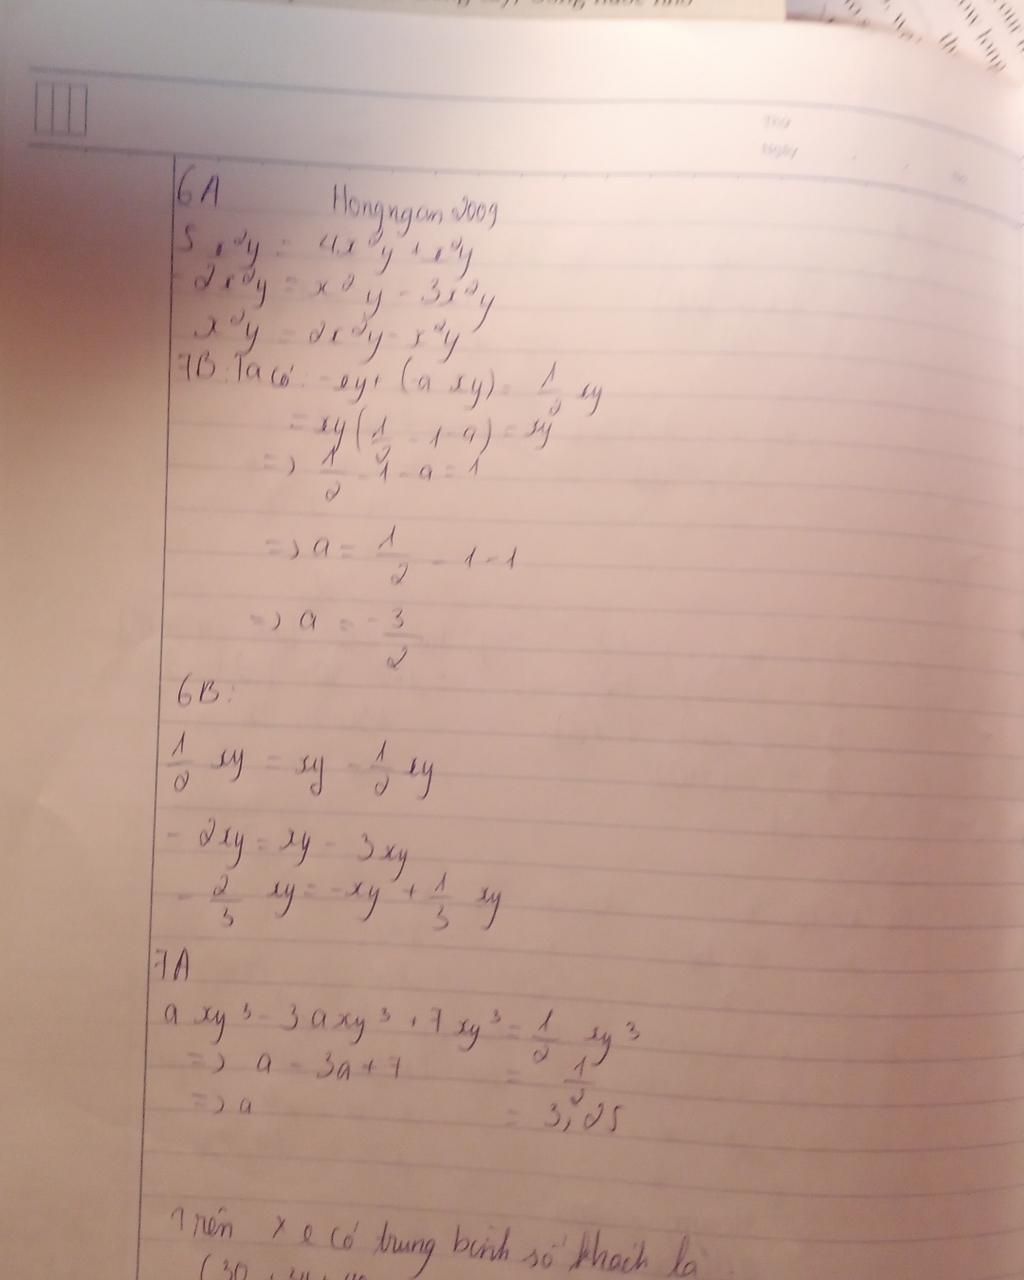 Thứ
Ngày
6A Hongngan2009
5x²y = 4x²y + x²y
-2x²y = x²y - 3x²y
x²y = 2x²y - x²y
7B: Ta có: -xy + (-a xy) = 1/2 xy
= xy(1/2 - 1 - a) = xy
=> 1/2 - 1 - a = 1
=> a = 1/2 - 1 - 1
=> a = -3/2
6B:
1/2 xy = xy - 1/2 xy
- 2xy = xy - 3xy
- 2/3 xy = -xy + 1/3 xy
7A
a xy³ - 3axy³ + 7xy³ = 1/2 xy³
=> a - 3a + 7 = 1/2
=> a = 3,25
Trên xe có trung bình số khách là